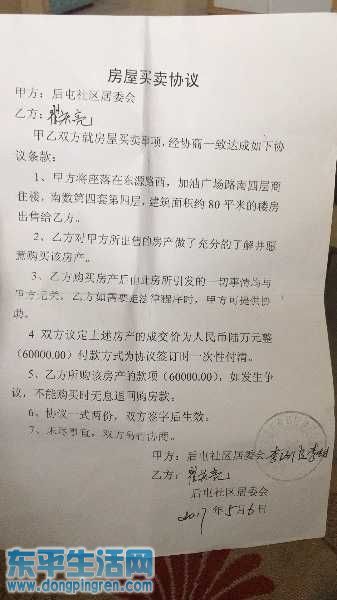 房屋买卖协议
甲方：后屯社区居委会
乙方：
甲乙双方就房屋买卖事项，经协商一致达成如下协
议条款：
1、甲方将座落在东源路西，加油广场路南四层商
住楼，南数第四套第四层，建筑面积约 80 平米的楼房
出售给乙方。
2、乙方对甲方所出售的房产做了充分的了解并愿
意购买该房产。
3、乙方购买房产后由此房所引发的一切事情均与
甲方无关，乙方如需要走法律程序时，甲方可提供协
助。
4、双方议定上述房产的成交价为人民币陆万元整
（60000.00）付款方式为协议签订时一次性付清。
5、乙方所购该房产的款项（60000.00），如发生争
议，不能购买时无息退回购房款；
6、协议一式两份，双方签字后生效；
7、未尽事宜，双方另行协商。
甲方：后屯社区居委会
乙方：
后屯社区居委会
2017 年 5 月 6 日
东平生活网
www.dongpingren.com